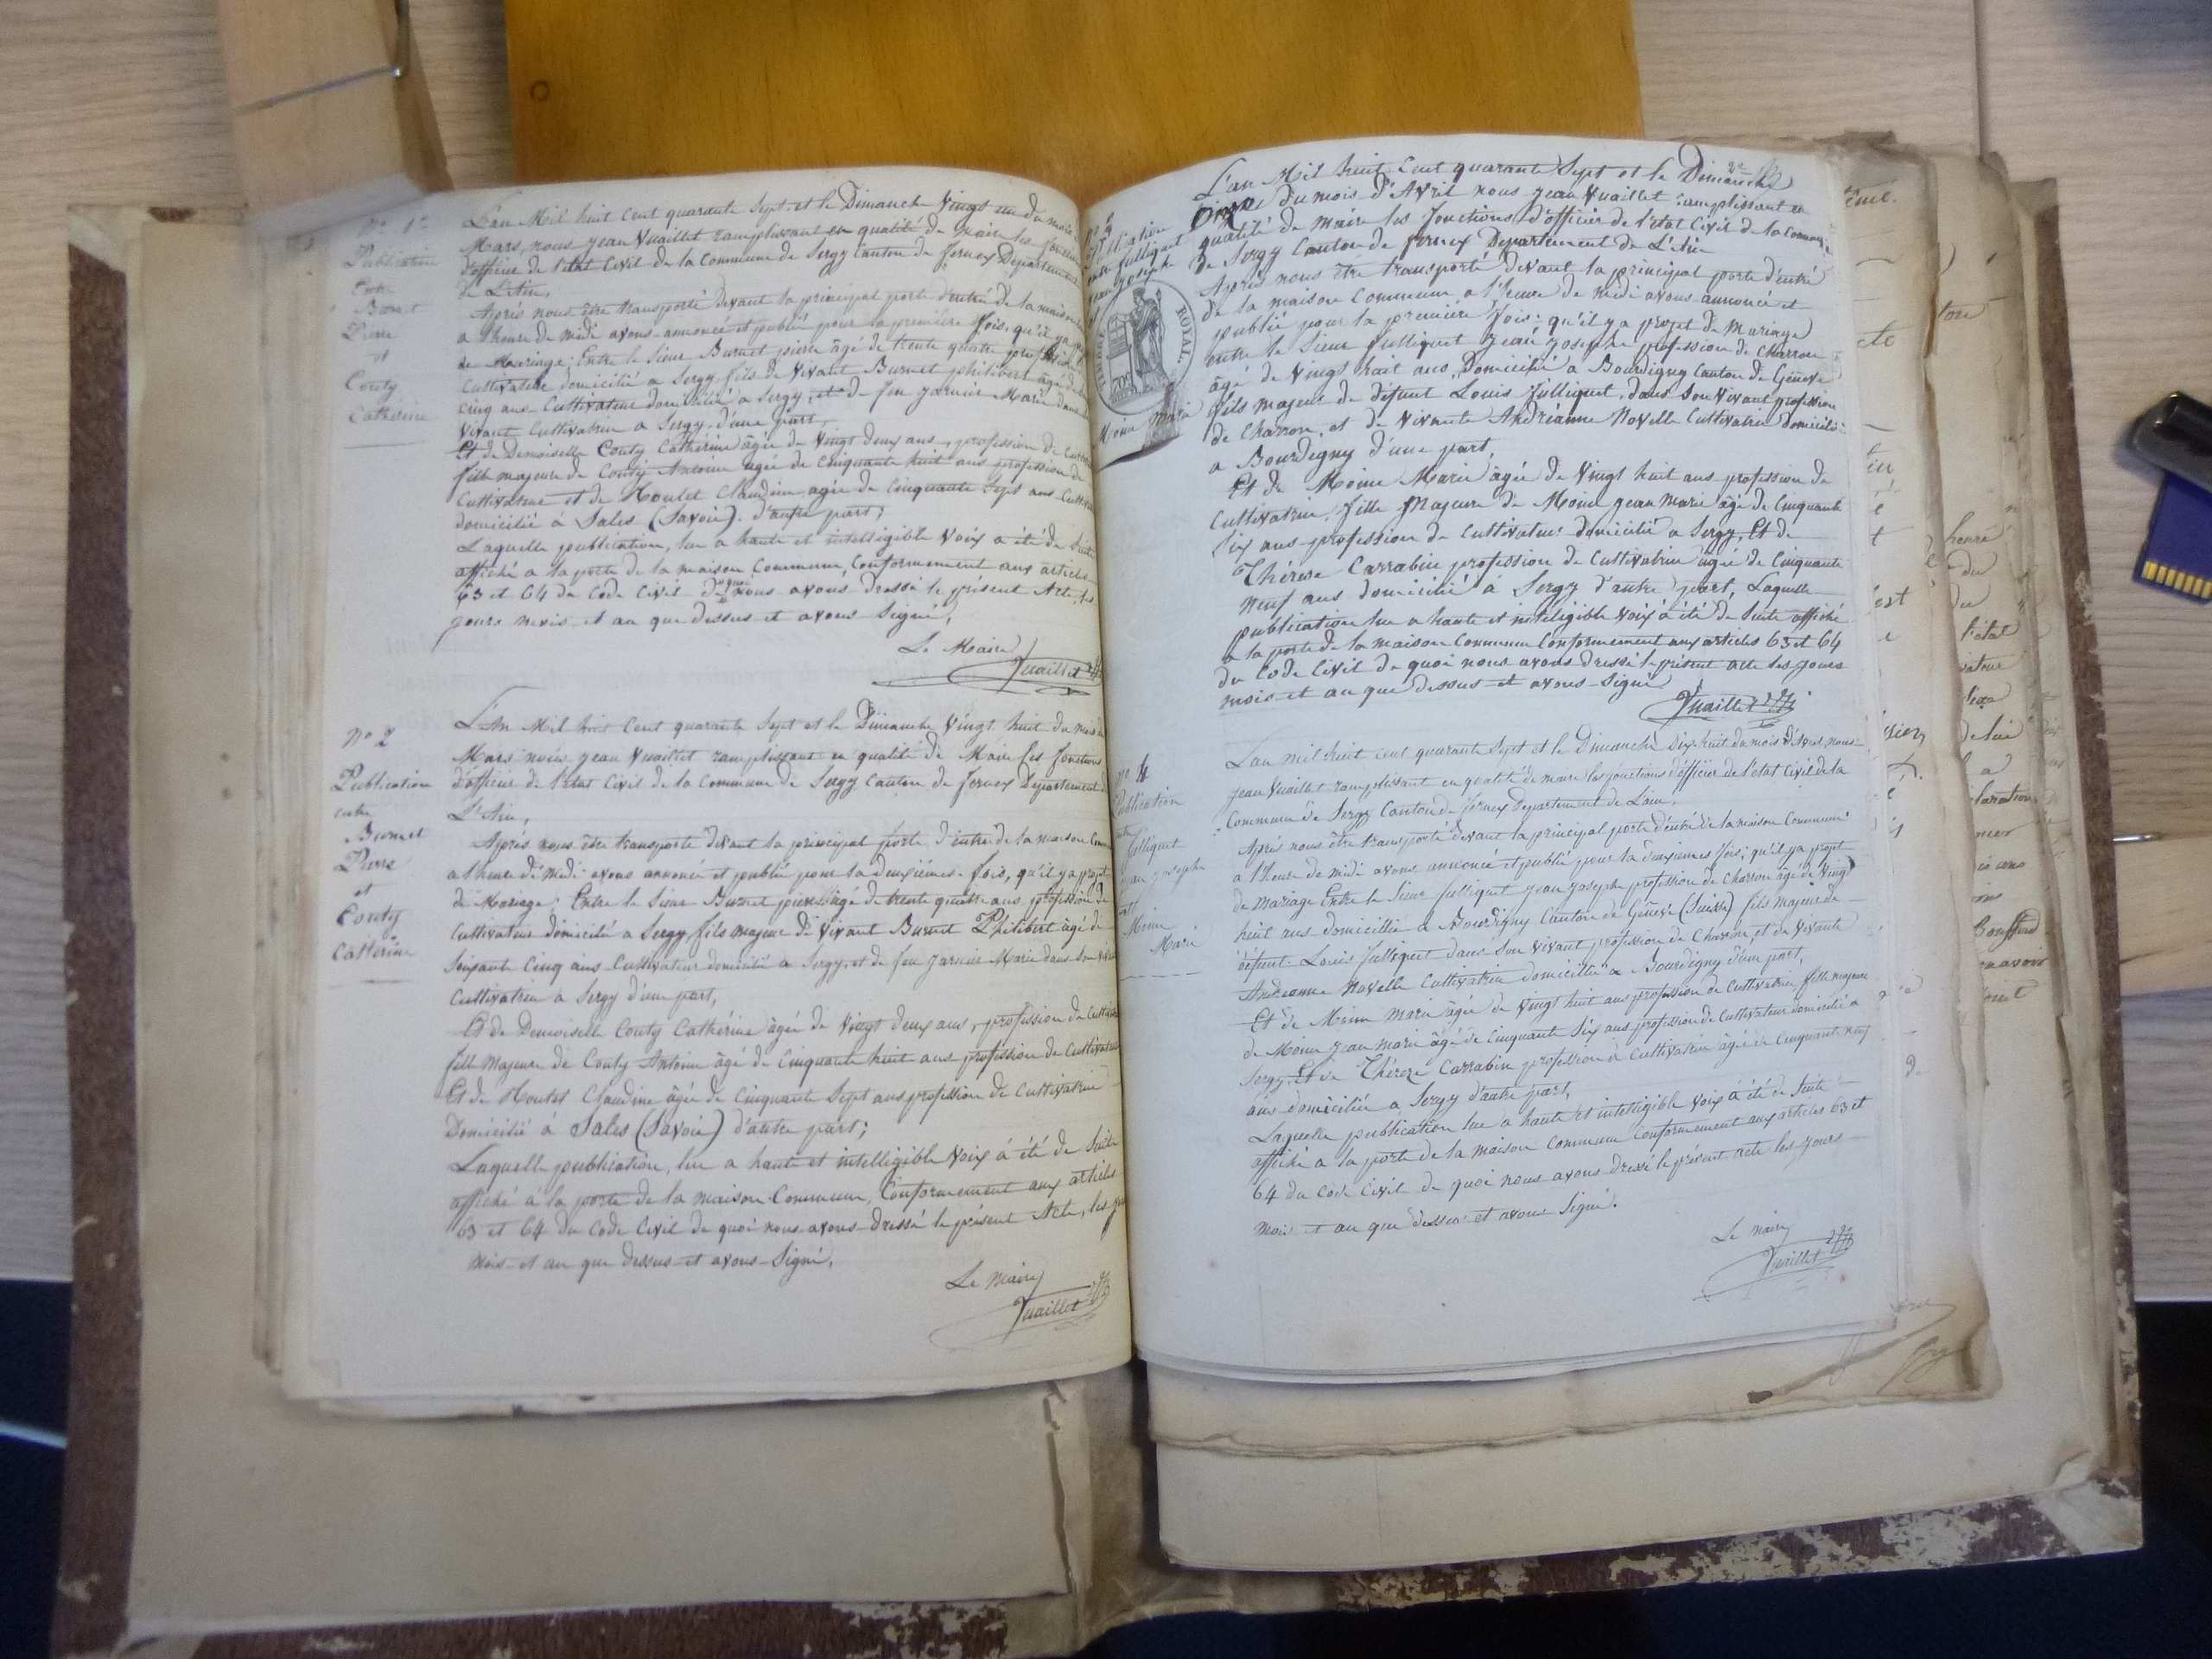 N° 1er
Publication
Entre
Burnet
Pierre
et
Couty
Catherine
L'an Mil huit Cent quarante Sept et le Dimanche Vingt un du mois
Mars, nous Jean Vuaillet ramplissant en qualité de Maire les fonctions
d'officier de l'état Civil de la Commune de Sergy Canton de fernex Département
de L'Ain,
Après nous être transporté devant la principal porte d'entré de la maison
a l'heure de midi avons annoncé et publié pour la première fois, qu'il ya
de Mariage; Entre le Sieur Burnet pierre âgé de trente quatre
Cultivateur domicilié a Sergy fils de Vivant Burnet philibert âgé de
Cinq ans Cultivateur domicilié a Sergy, et de feu Jarnier Marie dans
Vivant Cultivatrice a Sergy, d'une part,
Et de Demoiselle Couty Cathérine âgée de Vingt deux ans, profession de
fille majeure de Couty Antoine âgée de Cinquante huit ans profession de
Cultivateur et de Houtet Claudine agée de Cinquante Sept ans
domicilié à Sales (Savoie). d'autre part;
Laquelle publication, lue a haute et intelligible Voix a été de Suite
affiché a la porte de la maison Commune, Conformement aux articles
63 et 64 du Code Civil de quoi nous avons dressé le présent Acte, les
jours mois et an que dessus et avons Signé,
Le Maire
Vuaillet
N° 2
Publication
entre
Burnet
Pierre
et
Couty
Catherine
L'An Mil huit Cent quarante Sept et le Dimanche Vingt huit du mois
Mars nous Jean Vuaillet ramplissant en qualité de Maire les fonctions
d'officier de l'état Civil de la Commune de Sergy Canton de fernex Departement
L'Ain,
Après nous être transporté devant la principal porte d'entré de la maison
a l'heure de midi avons annoncé et publié pour la deuxiémes fois, qu'il ya projet
de Mariage; Entre le Sieur Burnet pierre âgé de trente quatre ans profession de
Cultivateur domicilié a Sergy, fils majeur de Vivant Burnet Philibert âgé de
Soixante Cinq ans Cultivateur domicilié a Sergy, et de feu Jarnier Marie dans Son
Cultivatrice a Sergy d'une part,
Et de Demoiselle Couty Cathérine âgée de Vingt deux ans, profession de
fille Majeure de Couty Antoine âgé de Cinquante huit ans profession de Cultivateur
Et de Houtet Claudine âgée de Cinquante Sept ans profession de Cultivatrice
Domicilié à Sales (Savoie) d'autre part;
Laquelle publication, lue a haute et intelligible Voix à été de Suite
affiché à la porte de la maison Commune, Conformement aux articles
63 et 64 du Code Civil de quoi nous avons dressé le présent Acte, les
mois et an que dessus et avons Signé,
Le Maire
Vuaillet
TIMBRE ROYAL
70c
Moine Marie
L'an Mil huit Cent quarante Sept et le Dimanche
Onze du mois d'Avril nous Jean Vuaillet ramplissant en
qualité de Maire les fonctions d'officier de l'état Civil de la Commune
de Sergy Canton de fernex Departement de L'Ain
Après nous être transporté devant la principal porte d'entré
de la maison Commune a l'heure de midi avons annoncé et
publié pour la première fois: qu'il ya projet de Mariage
entre le Sieur fulliquet Jean Joseph profession de Charron
âgé de Vingt huit ans, Domicilié a Bourdigny Canton de Génève
fils majeur de défunt Louis fulliquet, dans Son Vivant profession
de Charron, et de Vivante Andréanne Novelle Cultivatrice domicilié
a Bourdigny d'une part,
Et de Moine Marie âgée de Vingt huit ans profession de
Cultivatrice, fille Majeure de Moine Jean Marie âgé de Cinquante
Six ans profession de Cultivateur domicilié a Sergy, Et de
Thérese Carrabin profession de Cultivatrice âgée de Cinquante
neuf ans domicilié à Sergy d'autre part, Laquelle
publication lue a haute et inteligible Voix à été de Suite affiché
a la porte de la maison Commune Conformement aux articles 63 et 64
du Code Civil de quoi nous avons dressé le présent acte les jours
mois et an que dessus et avons Signé
Vuaillet
N° 4
Publication
fulliquet
Jean Joseph
et
Moine
Marie
L'an mil huit cent quarante Sept et le Dimanche dix huit du mois d'Avril nous
Jean Vuaillet ramplissant en qualité de maire les fonctions d'officier de l'état Civil de la
Commune de Sergy Canton de fernex Departement de L'ain,
Après nous être transporté devant la principal porte d'entré de la maison Commune
a l'heure de midi avons annoncé et publié pour la deuxiemes fois; qu'il ya projet
de Mariage Entre le Sieur fulliquet Jean Joseph profession de Charron âgé de Vingt
huit ans domicillié a Bourdigny Canton de Génève (Suisse) fils Majeur de
défunt Louis fulliquet dans Son Vivant profession de Charron, et de Vivante
Andreanne Novelle Cultivatrice domicilliée a Bourdigny d'une part,
Et de Moine Marie âgée de Vingt huit ans profession de Cultivatrice, fille majeure
de Moine Jean marie âgé de Cinquante Six ans profession de Cultivateur domicilié a
Sergy, Et de Thérese Carrabin profession de Cultivatrice âgée de Cinquante neuf
ans domiciliée a Sergy d'autre part,
Laquelle publication lue a haute et intelligible Voix à été de Suite
affiché a la porte de la maison Commune Conformement aux articles 63 et
64 du Code Civil de quoi nous avons dressé le présent acte les jours
mois et an que dessus et avons Signé.
Le maire
Vuaillet